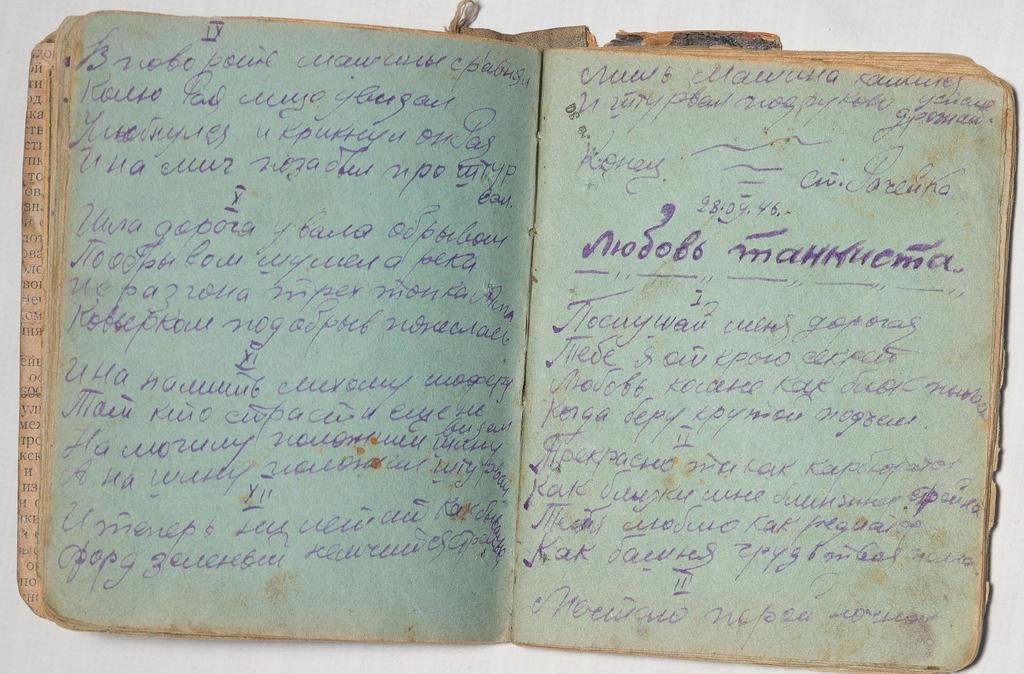 IX
В повороте машины сравнял
Колю Рая лицо увидал
Улыбнулся и крикнул он Рая
И на миг позабыл про штур
вал.
X
Шла дорога у вала обрывом
Пообрывом шумела река
Ковырком под обрыв понеслась
XI
И на память лихому шоферу
Там кто страсти
видал
На могилу положили шину
А на шину положили штурвал
XII
И теперь не летит как бывало
форд зеленый
лишь машина
И штурвал подруково
дрожал.
Конец
ст. Рачейка
28.09.46.
Любовь танкиста.
I
Послушай меня дорогая
Тебе я открою секрет
Любовь
Когда беру крутой подъем.
II
Прекрасно ты как карбюратор
Как близки мне
Тебя люблю как радиатор
Как башня грудь твоя полна
II
порой ночной